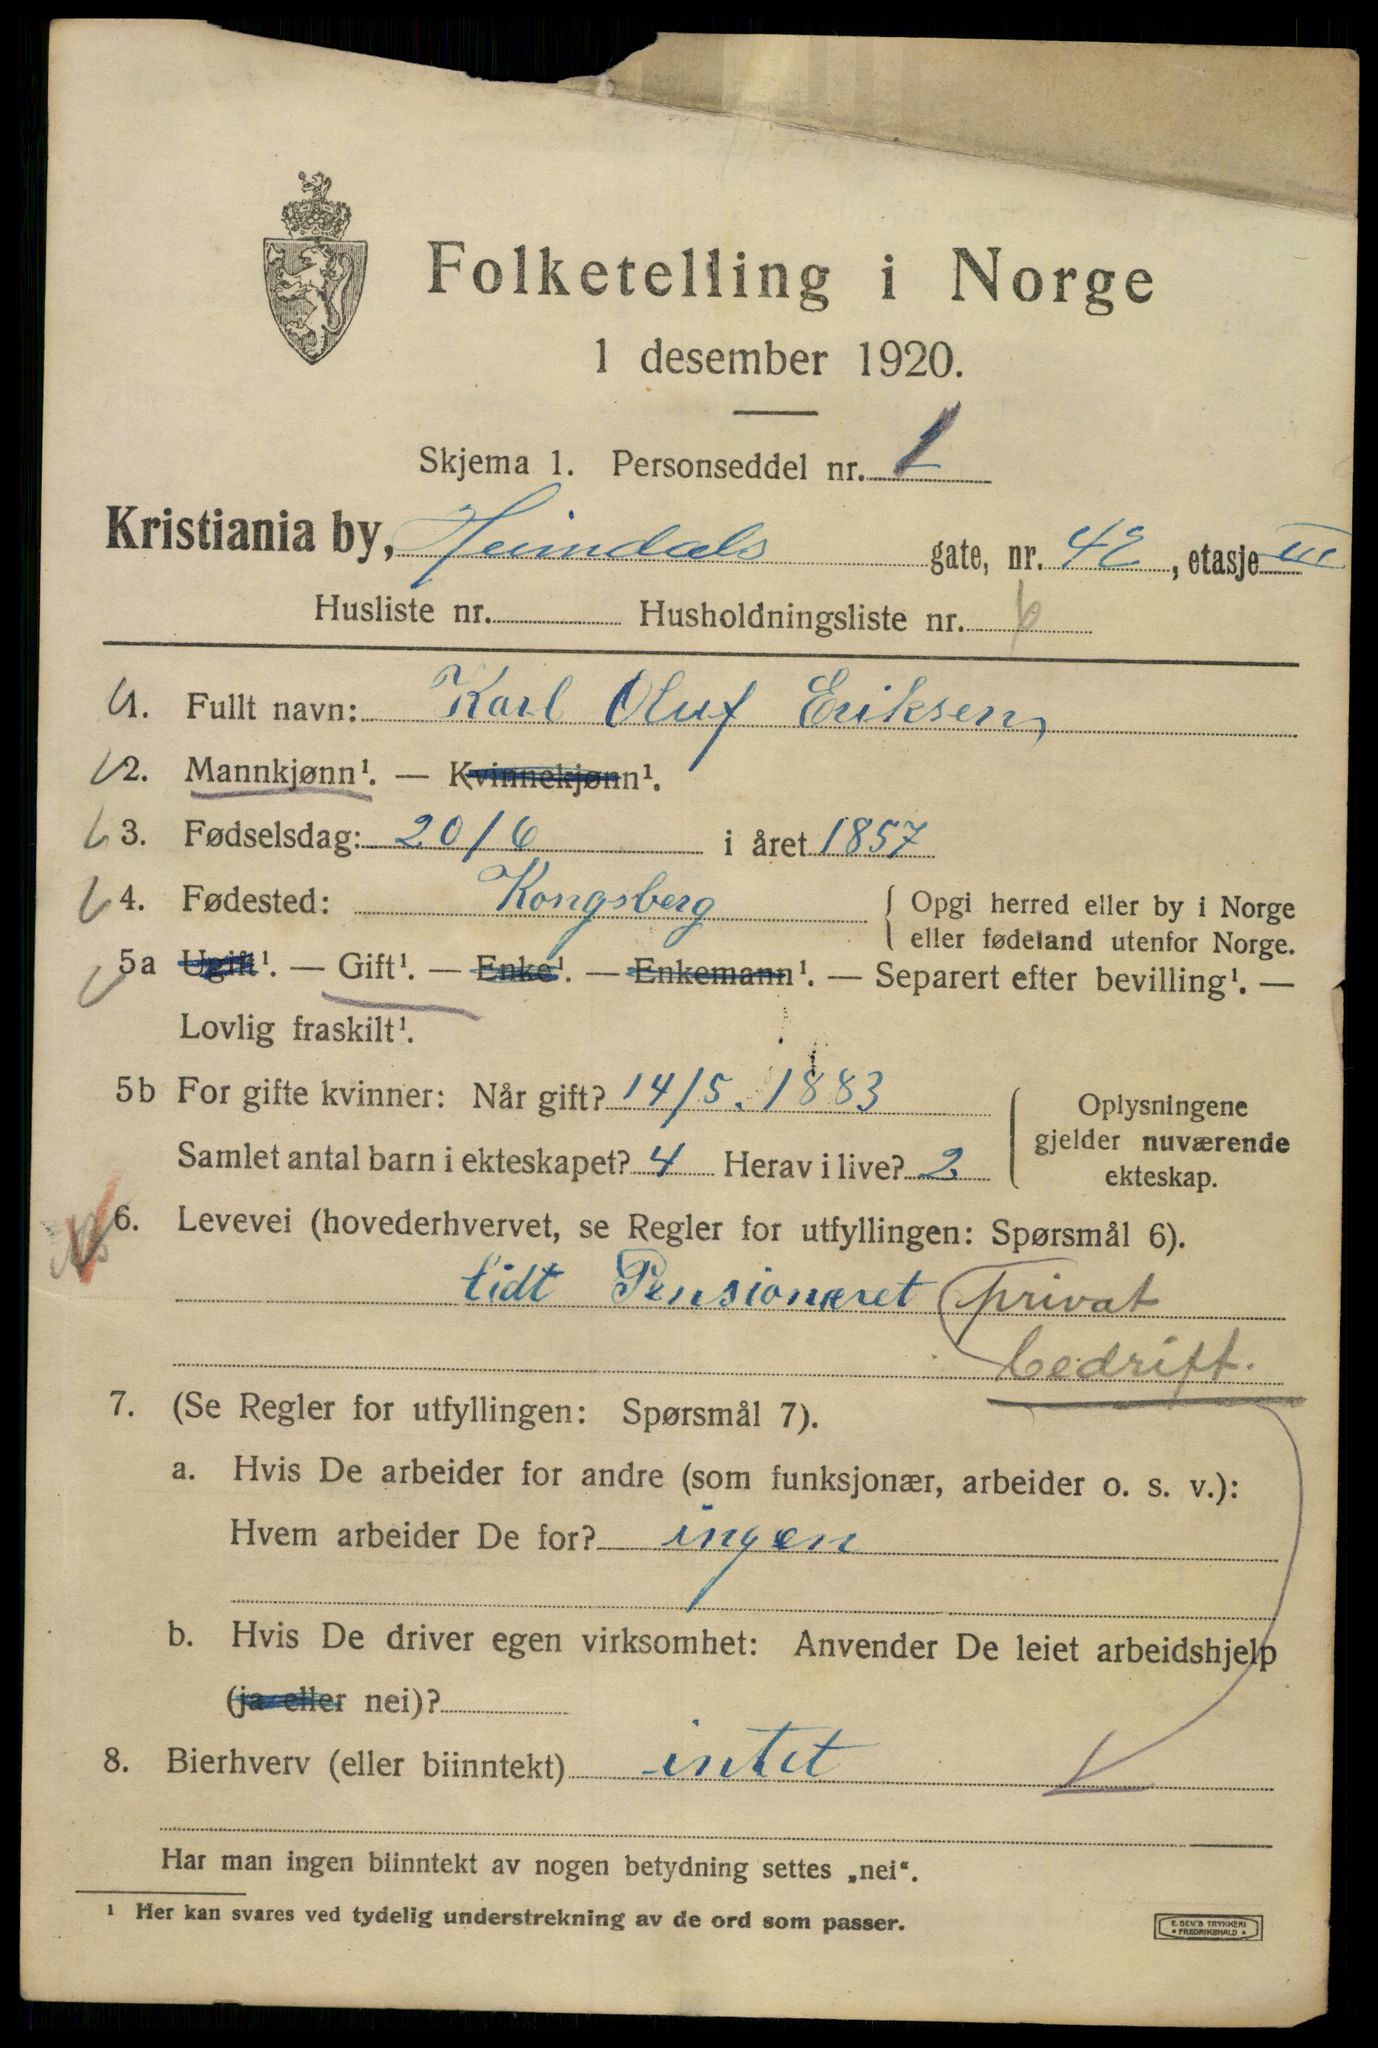 Folketelling i Norge
1 desember 1920.
Skjema 1. Personseddel nr. 1
Kristiania by, Heimdals gate, nr. 42, etasje III
Husliste nr. Husholdningsliste nr. 6
1. Fullt navn: Karl Oluf Eriksen,
2. Mannkjønn¹. — Kvinnekjønn¹.
3. Fødselsdag: 20/6 i året 1857
4. Fødested: Kongsberg { Opgi herred eller by i Norge
eller fødeland utenfor Norge.
5a Ugift¹. — Gift¹. — Enke¹. — Enkemann¹. — Separert efter bevilling¹. —
Lovlig fraskilt¹.
5b For gifte kvinner: Når gift? 14/5. 1883
Samlet antal barn i ekteskapet? 4 Herav i live? 2
Oplysningene
gjelder nuværende
ekteskap.
6. Levevei (hovederhvervet, se Regler for utfyllingen: Spørsmål 6).
lidt Pensioneret (privat
bedrift.
7. (Se Regler for utfyllingen: Spørsmål 7).
a. Hvis De arbeider for andre (som funksjonær, arbeider o. s. v.):
Hvem arbeider De for? ingen
b. Hvis De driver egen virksomhet: Anvender De leiet arbeidshjelp
(ja eller nei)?
8. Bierhverv (eller biinntekt) intet
Har man ingen biinntekt av nogen betydning settes „nei“.
¹ Her kan svares ved tydelig understrekning av de ord som passer.
E. SEM'S TRYKKERI
• FREDRIKSHALD •